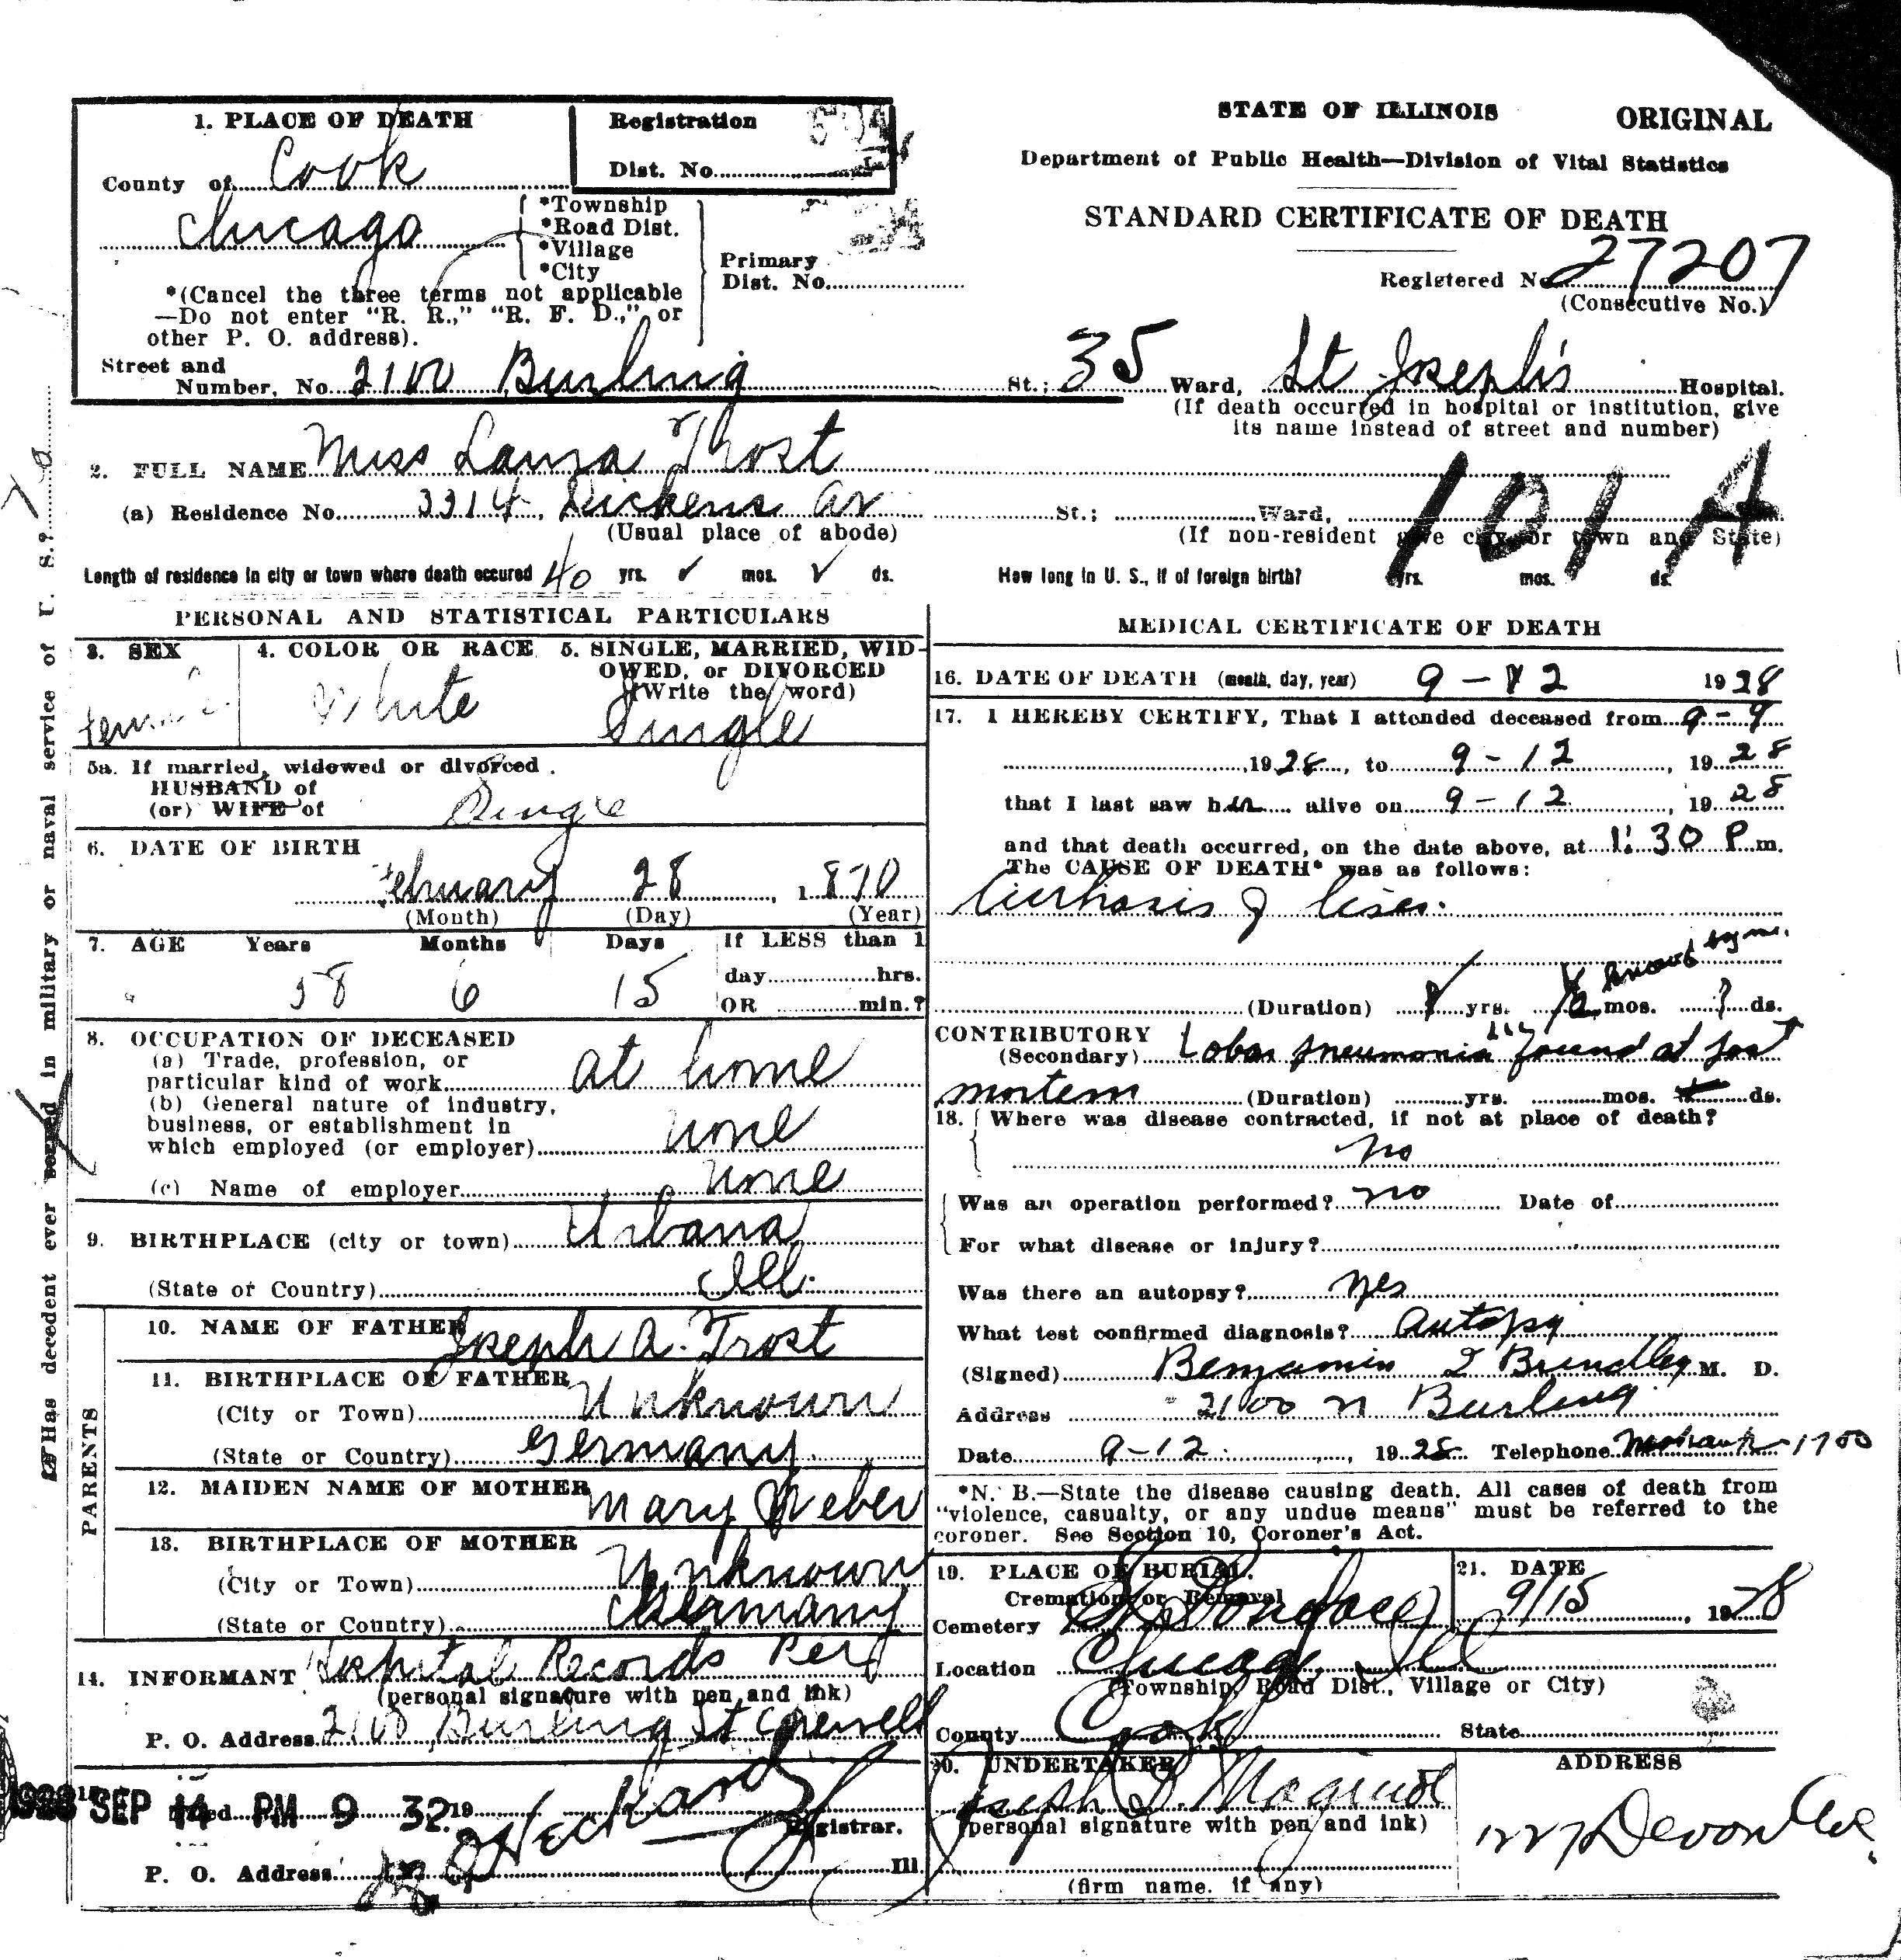 STATE OF ILLINOIS
ORIGINAL
Department of Public Health—Division of Vital Statistics
STANDARD CERTIFICATE OF DEATH
Registered No. 27207
(Consecutive No.)
1. PLACE OF DEATH
Registration
Dist. No.
County of Cook
Chicago
*Township
*Road Dist.
*Village
*City
Primary
Dist. No.
*(Cancel the three terms not applicable
—Do not enter “R. R.,” “R. F. D.,” or
other P. O. address).
Street and
Number, No. 2100 Burling St.; 35 Ward, St Joseph's Hospital.
(If death occurred in hospital or institution, give
its name instead of street and number)
2. FULL NAME Miss Laura Trost
101 A
(a) Residence No. 3314 Dickens av St.; Ward,
(Usual place of abode)
(If non-resident give city or town and State)
Length of residence in city or town where death occured 40 yrs. mos. ds.
How long in U. S., if of foreign birth? yrs. mos. ds.
PERSONAL AND STATISTICAL PARTICULARS
3. SEX
4. COLOR OR RACE
5. SINGLE, MARRIED, WID-
OWED, or DIVORCED
(Write the word)
White
Single
5a. If married, widowed or divorced
HUSBAND of
(or) WIFE of
Single
6. DATE OF BIRTH
February 28, 1870
(Month) (Day) (Year)
7. AGE Years Months Days If LESS than 1
day hrs.
58 6 15
OR min.?
8. OCCUPATION OF DECEASED
(a) Trade, profession, or
particular kind of work at home
(b) General nature of industry,
business, or establishment in
which employed (or employer) none
(c) Name of employer none
9. BIRTHPLACE (city or town) Urbana
(State or Country) Ill.
PARENTS
10. NAME OF FATHER Joseph A. Trost
11. BIRTHPLACE OF FATHER
(City or Town) Unknown
(State or Country) Germany
12. MAIDEN NAME OF MOTHER Mary Weber
13. BIRTHPLACE OF MOTHER
(City or Town) Unknown
(State or Country) Germany
14. INFORMANT Hospital Records Per
(personal signature with pen and ink)
P. O. Address 2100 Burling St
15. Filed 19
1928 SEP 14 PM 9 32
Registrar.
P. O. Address Ill.
MEDICAL CERTIFICATE OF DEATH
16. DATE OF DEATH (month, day, year) 9 - 12 1928
17. I HEREBY CERTIFY, That I attended deceased from 9-9
, 1928, to 9-12, 1928
that I last saw her alive on 9-12, 1928
and that death occurred, on the date above, at 1:30 P.m.
The CAUSE OF DEATH* was as follows:
Cirrhosis of liver.
(Duration) yrs. mos. ? ds.
CONTRIBUTORY
(Secondary) Lobar pneumonia found at post
mortem (Duration) yrs. mos. ds.
18. Where was disease contracted, if not at place of death?
no
Was an operation performed? no Date of
For what disease or injury?
Was there an autopsy? yes
What test confirmed diagnosis? Autopsy
(Signed) Benjamin I Brindley M. D.
Address 2100 n Burling
Date 9-12, 1928 Telephone Mohawk-1700
*N. B.—State the disease causing death. All cases of death from
“violence, casualty, or any undue means” must be referred to the
coroner. See Section 10, Coroner's Act.
19. PLACE OF BURIAL.
Cremation or Removal
Cemetery St Boniface
21. DATE
9/15, 1928
Location Chicago Ill
(Township, Road Dist., Village or City)
County Cook State
20. UNDERTAKER
ADDRESS
Joseph
(personal signature with pen and ink)
Devon Ave.
(firm name. if any)
Has decedent ever served in military or naval service of U. S.?